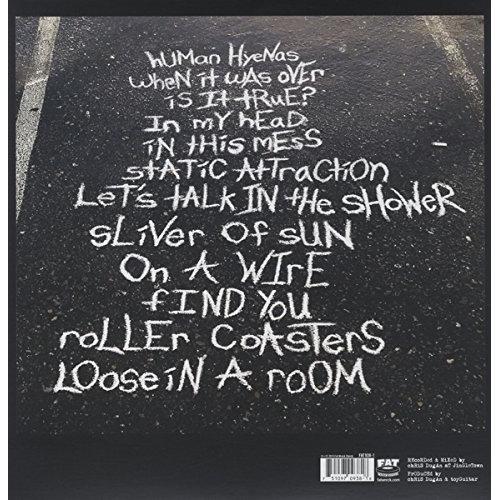 HUMAN HYENAS
WHEN IT WAS OVER
IS IT TRUE?
IN MY HEAD
IN THIS MESS
STATIC ATTRACTION
LET'S TALK IN THE SHOWER
SLIVER OF SUN
ON A WIRE
FIND YOU
ROLLER COASTERS
LOOSE IN A ROOM
FAT
fatwreck.com
RECORDED & MIXED BY
CHRIS DUGAN AT JINGLETOWN
PRODUCED BY
CHRIS DUGAN & TOYGUITAR